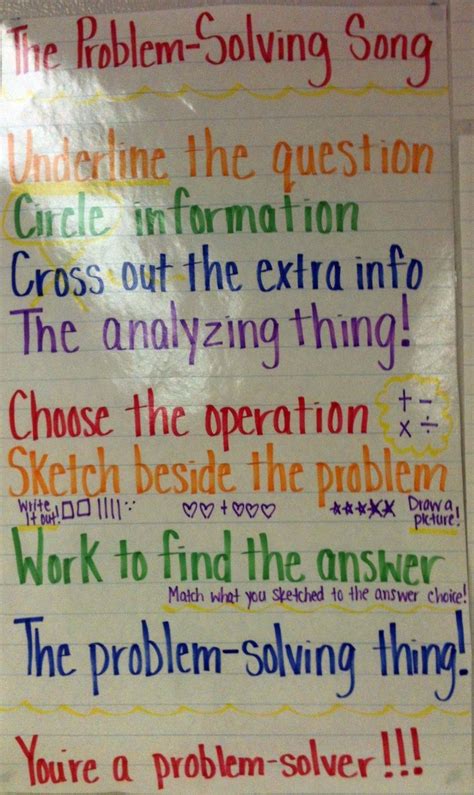 The Problem-Solving Song
Underline the question
Circle information
Cross out the extra info
The analyzing thing!
Choose the operation
+ -
x ÷
Sketch beside the problem
Write it out!
Draw a picture!
Work to find the answer
Match what you sketched to the answer choice!
The problem-solving thing!
You're a problem-solver!!!